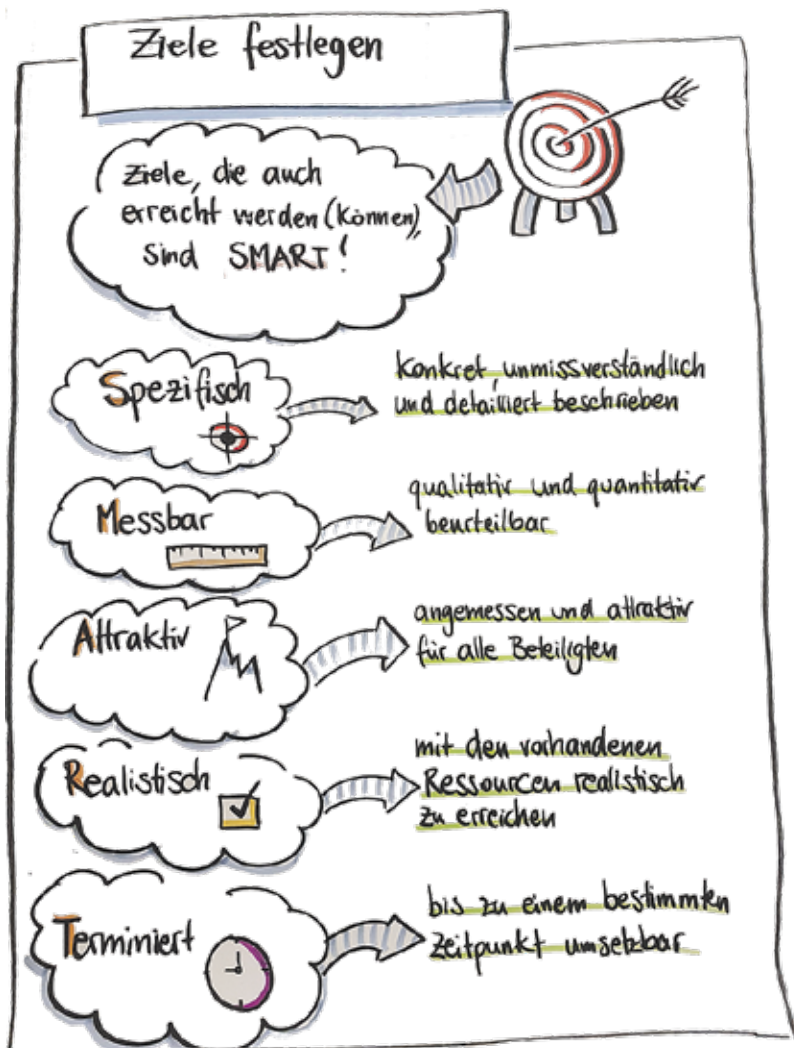 Ziele festlegen
Ziele, die auch
erreicht werden (können),
sind SMART!
Spezifisch
konkret, unmissverständlich
und detailliert beschrieben
Messbar
qualitativ und quantitativ
beurteilbar
Attraktiv
angemessen und attraktiv
für alle Beteiligten
Realistisch
mit den vorhandenen
Ressourcen realistisch
zu erreichen
Terminiert
bis zu einem bestimmten
Zeitpunkt umsetzbar